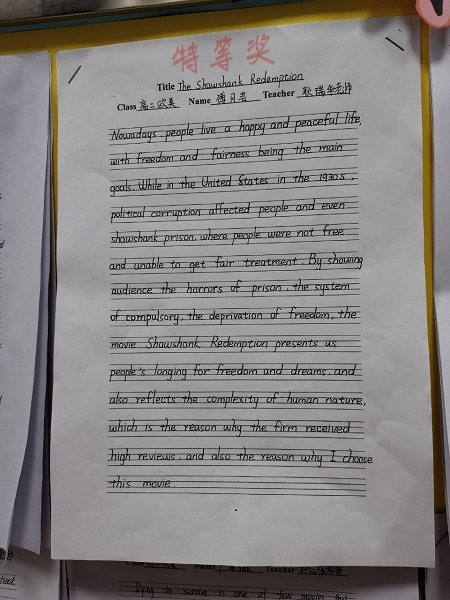 特等奖
Title The Shawshank Redemption
Class 高二欧美 Name 傅日芸 Teacher 耿瑞华老师
Nowadays, people live a happy and peaceful life,
with freedom and fairness being the main
goals. While in the United States in the 1930s,
political corruption affected people and even
shawshank prison, where people were not free
and unable to get fair treatment. By showing
audience the horrors of prison, the system
of compulsory, the deprivation of freedom, the
movie Shawshank Redemption presents us
people's longing for freedom and dreams, and
also reflects the complexity of human nature,
which is the reason why the firm received
high reviews, and also the reason why I choose
this movie.
Class Name Teacher
Dying to survive is one of few movies that